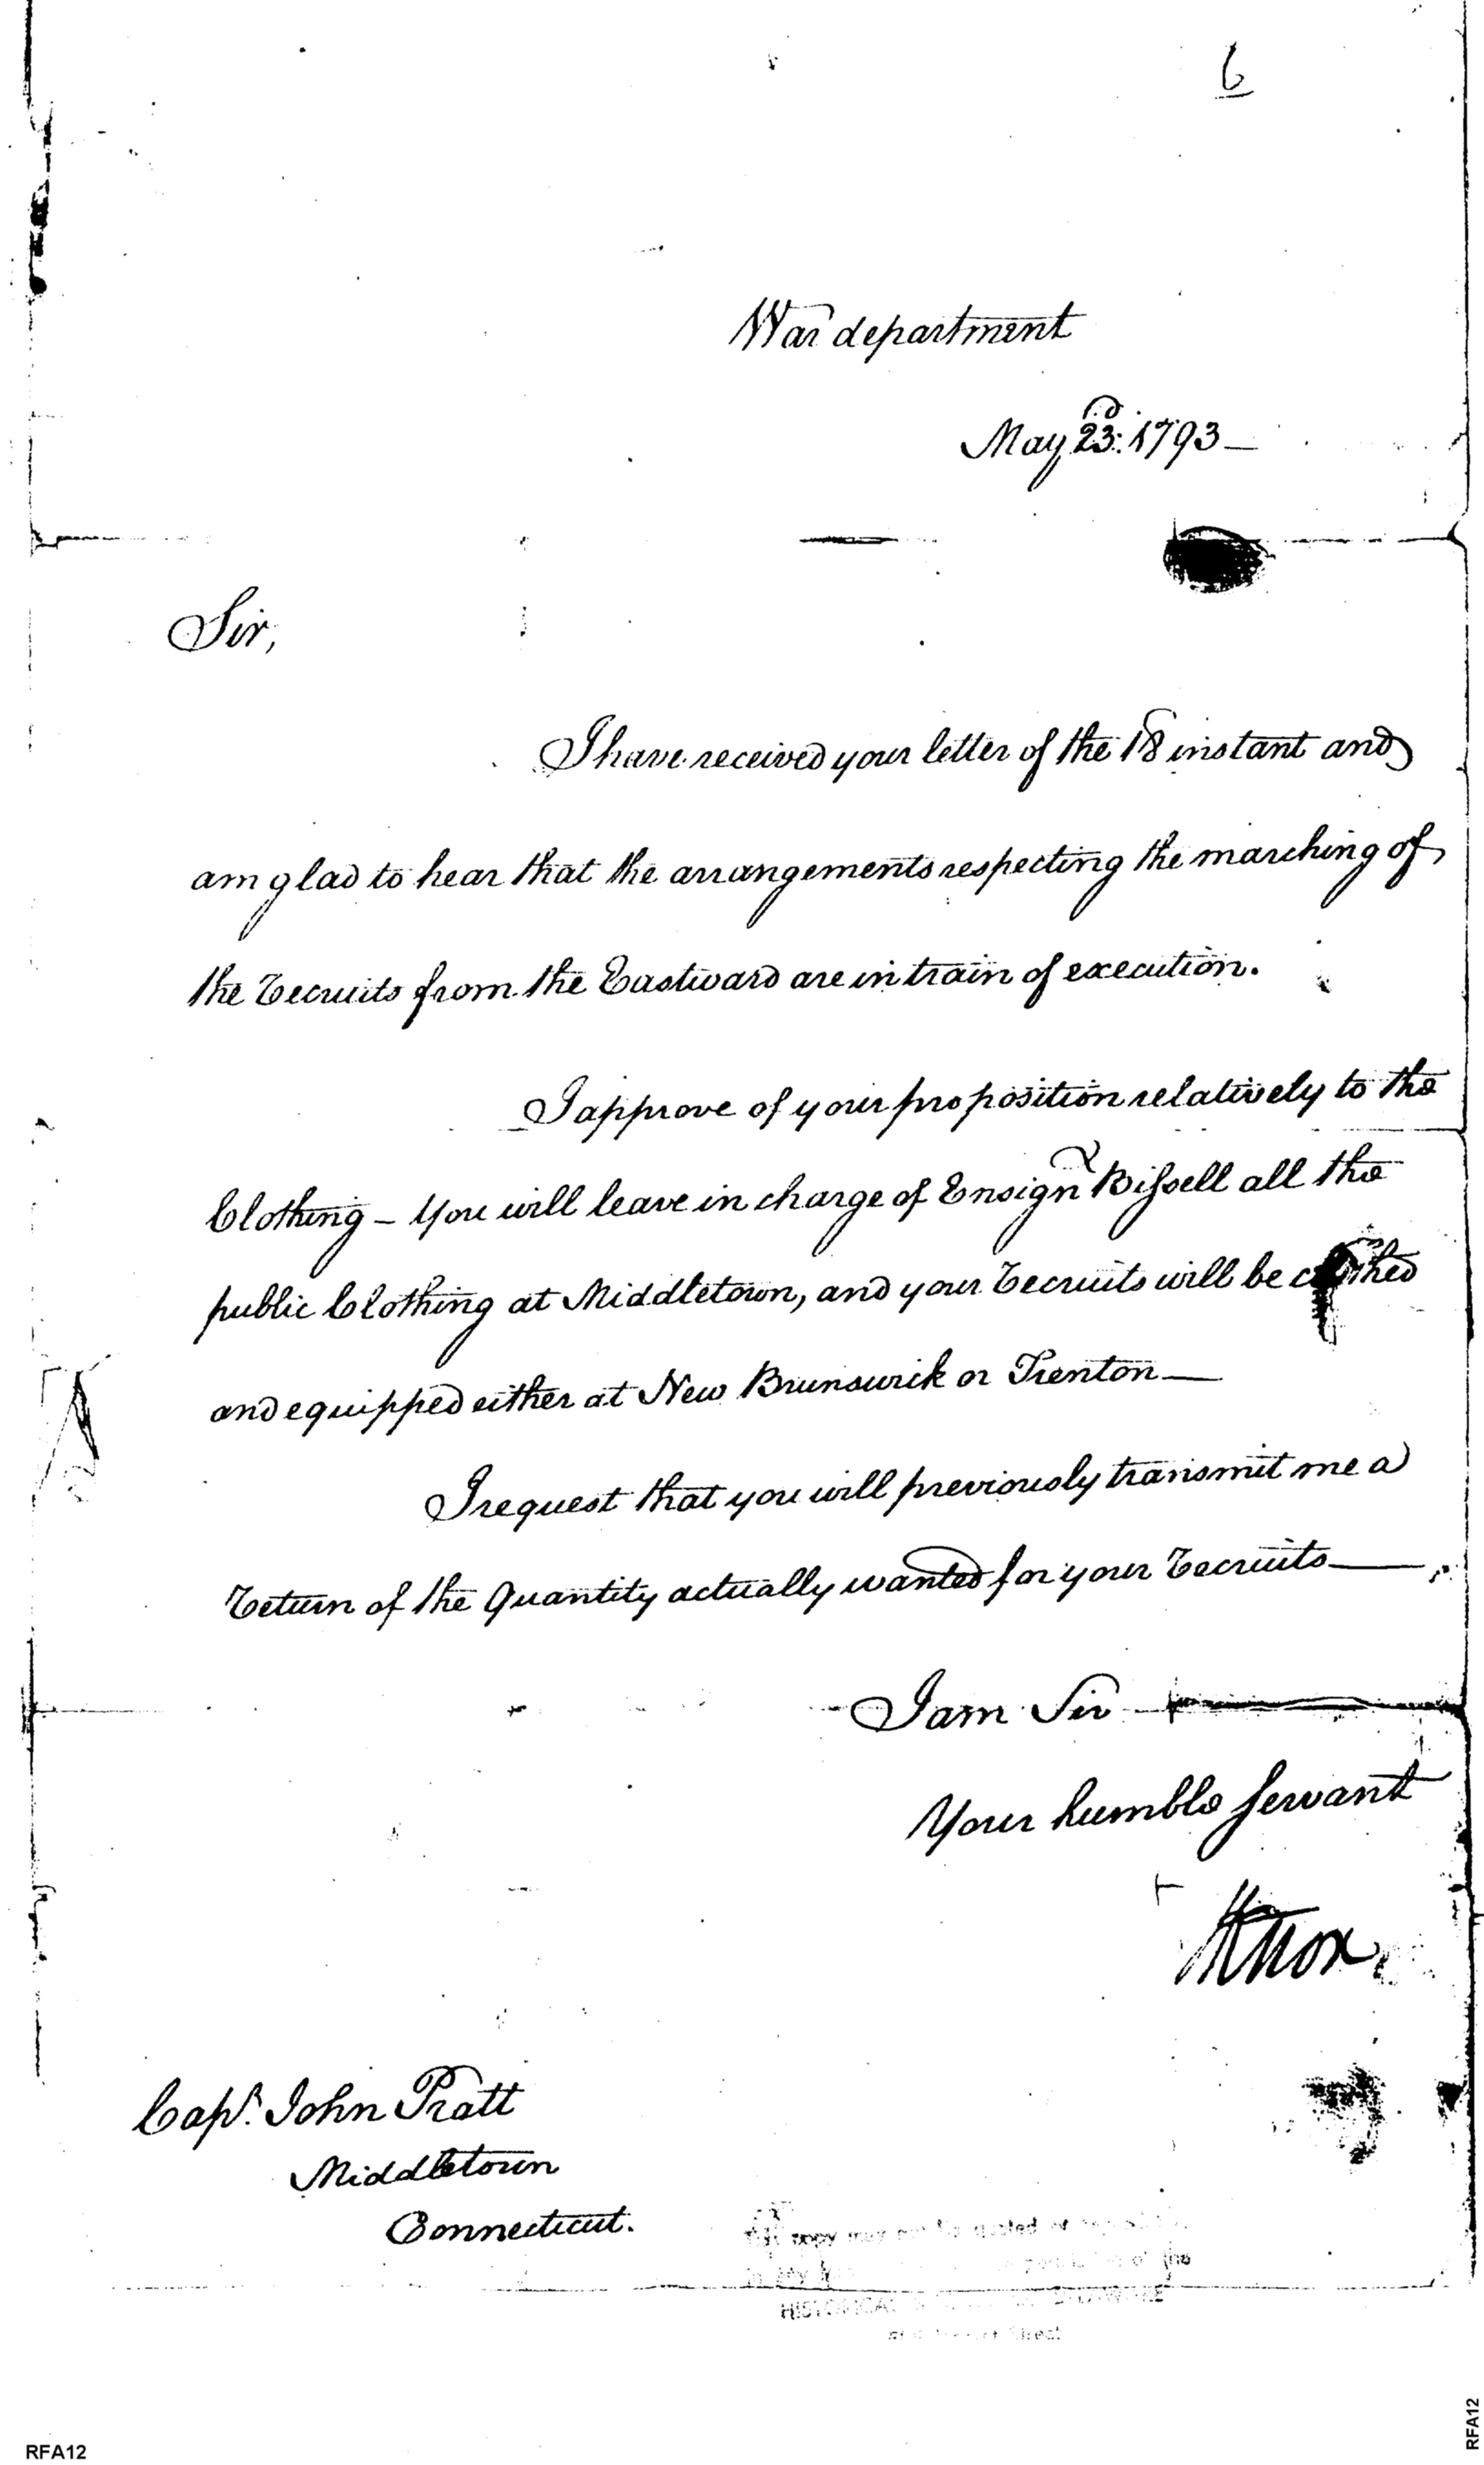 6
War department
May 23d: 1793 —
Sir,
I have received your letter of the 18 instant and
am glad to hear that the arrangements respecting the marching of
the Recruits from the Eastward are in train of execution.
I approve of your proposition relatively to the
Clothing — You will leave in charge of Ensign Bissell all the
public Clothing at Middletown, and your Recruits will be clothed
and equipped either at New Brunswick or Trenton —
I request that you will previously transmit me a
Return of the Quantity actually wanted for your Recruits —
I am Sir
Your humble Servant
HKnox
Capt. John Pratt
Middletown
Connecticut.
copy may
of the
HISTORICAL
Street
RFA12
RFA12